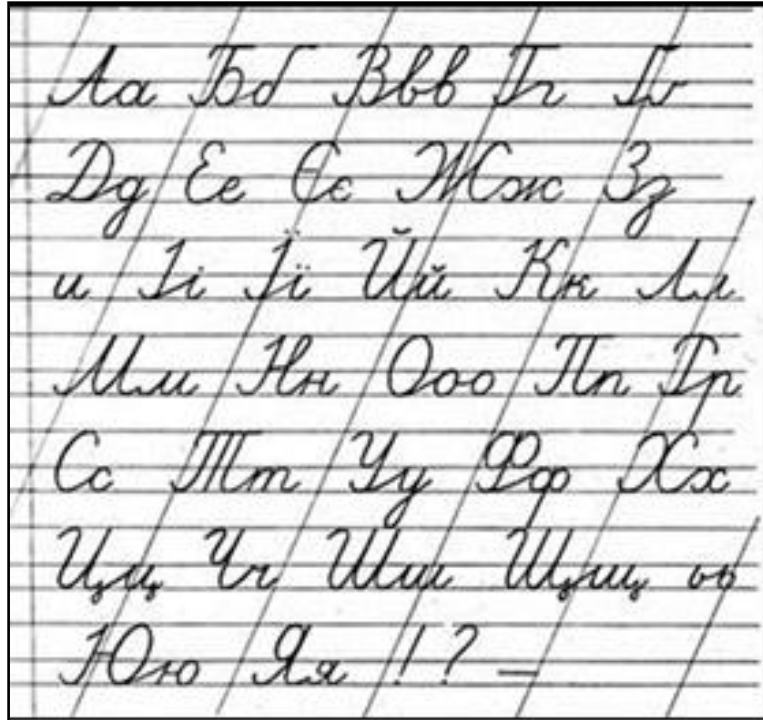 Аа БбВвв Гг Ґґ
Дд Ее Єє Жж Зз
и Іі Її Йй Кк Лл
Мм Нн Ооо Пп Рр
Сс Тт Уу Фф Хх
Цц Чч Шш Щщ ьь
Юю Яя ! ? –